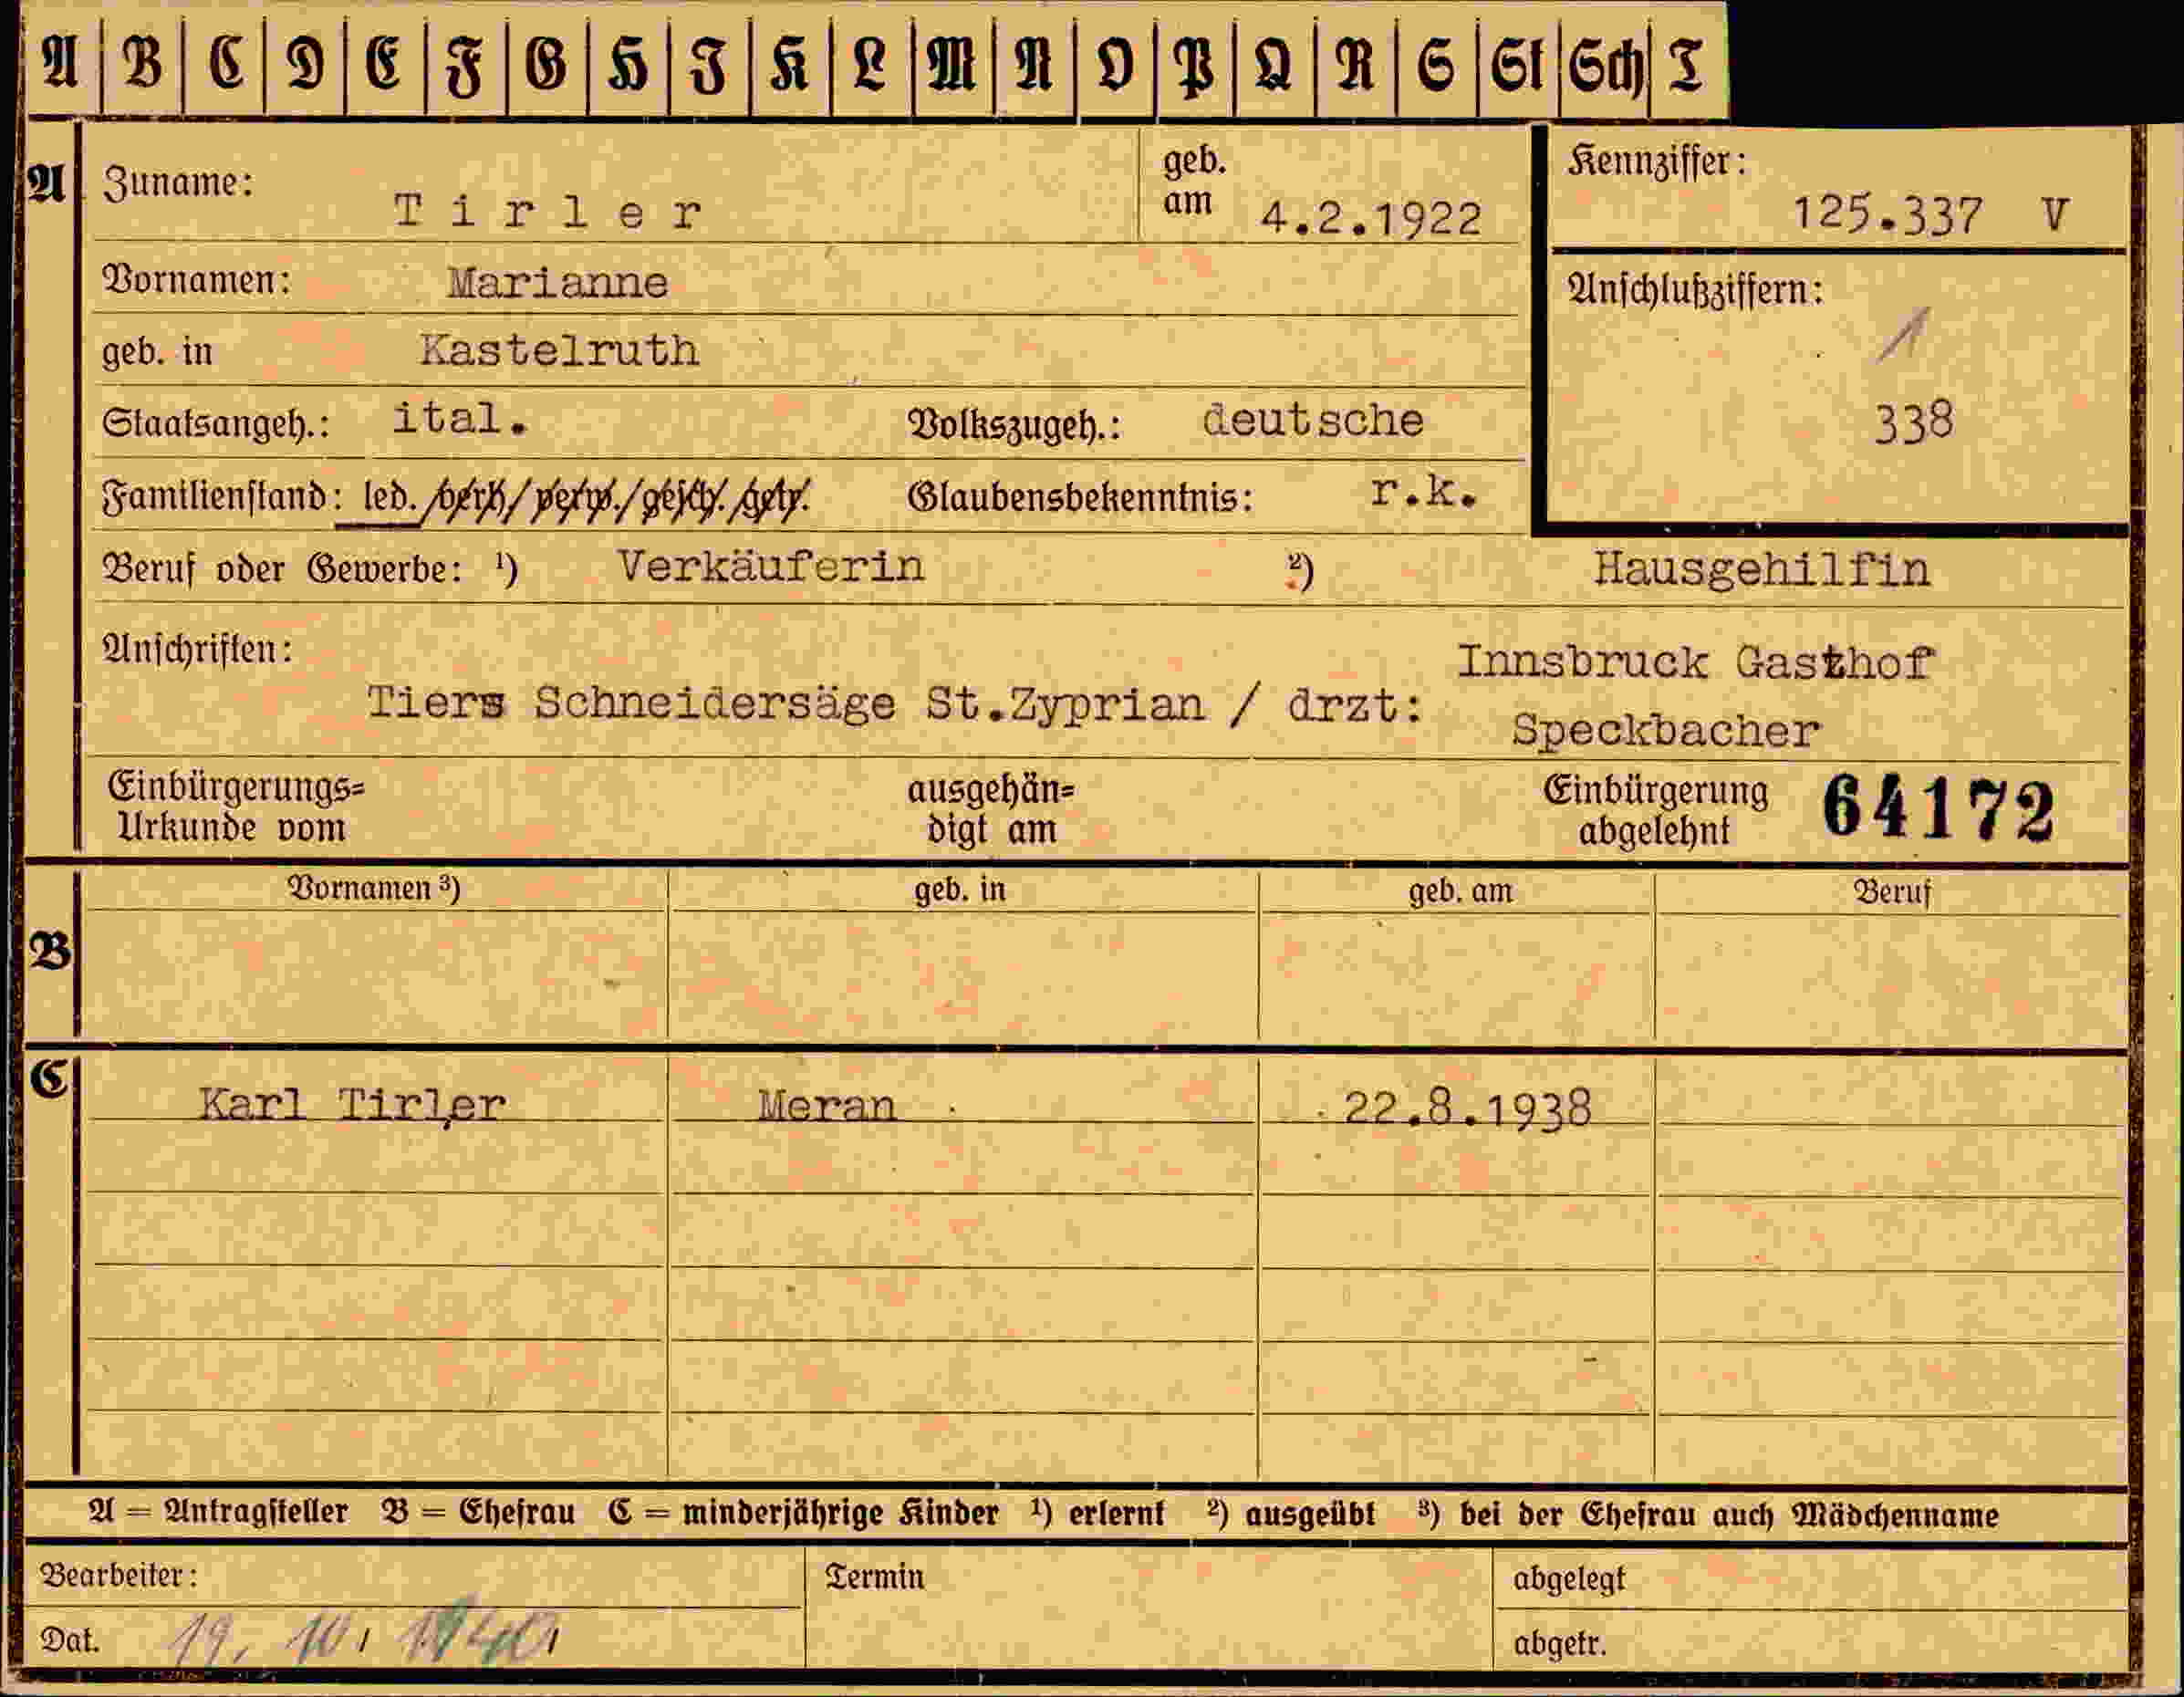 A B C D E F G H I K L M N O P Q R S St Sch T
A Zuname: Tirler geb. am 4.2.1922 Kennziffer: 125.337 V
Vornamen: Marianne Anschlußziffern: 1
geb. in Kastelruth
Staatsangeh.: ital. Volkszugeh.: deutsche 338
Familienstand: led./verh/verw./gesch./getr. Glaubensbekenntnis: r.k.
Beruf oder Gewerbe: ¹) Verkäuferin ²) Hausgehilfin
Anschriften: Innsbruck Gasthof
Tiers Schneidersäge St.Zyprian / drzt: Speckbacher
Einbürgerungs= ausgehän= Einbürgerung 64172
Urkunde vom digt am abgelehnt
Vornamen ³) geb. in geb. am Beruf
B
C
Karl Tirler Meran 22.8.1938
A = Antragsteller B = Ehefrau C = minderjährige Kinder ¹) erlernt ²) ausgeübt ³) bei der Ehefrau auch Mädchenname
Bearbeiter: Termin abgelegt
Dat. 19. 10. 1940 abgetr.